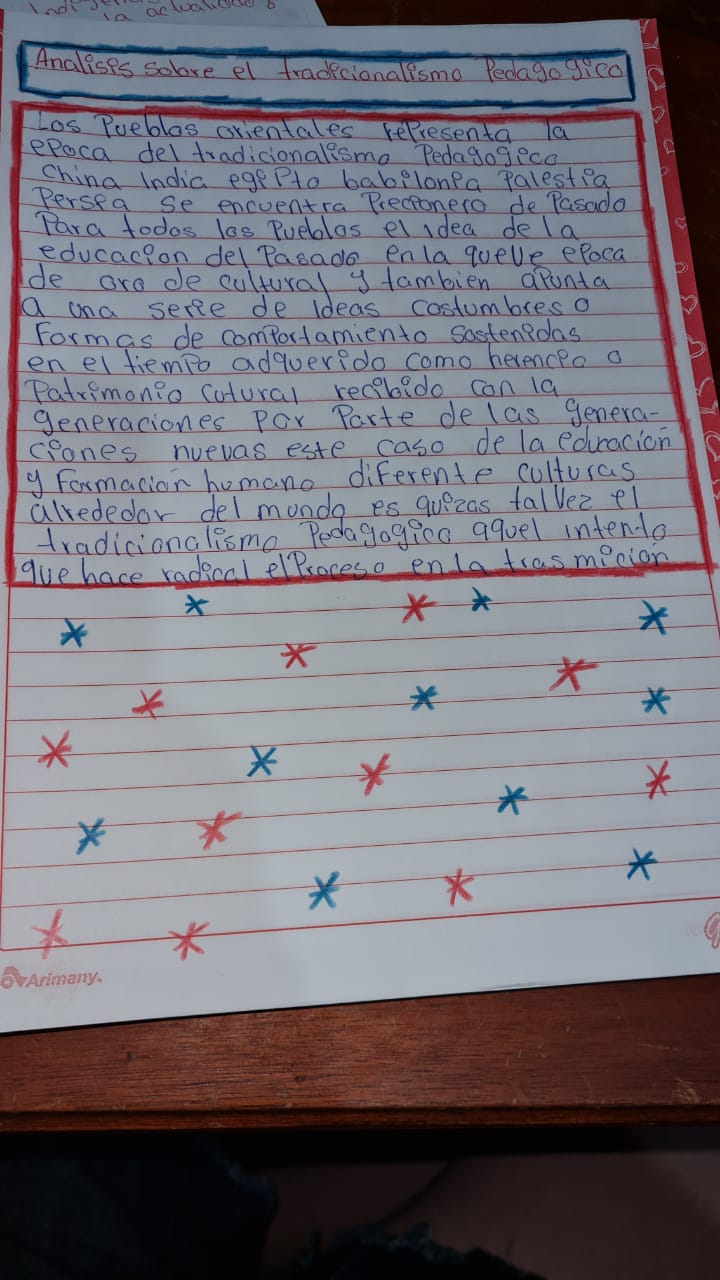 la actualidad
Analisis sobre el tradicionalismo Pedagogico
Los Pueblos orientales rePresenta la
epoca del tradicionalismo Pedagogico
China India egipto babilonia Palestia
Persia se encuentra Precionero de Pasado
Para todos los Pueblos el idea de la
educacion del Pasado en la queve epoca
de oro de cultural y tambien aPunta
a una serie de Ideas costumbres o
formas de comportamiento sostenidas
en el tiempo adquerido como herencia o
Patrimonio Cutural recibido con la
generaciones por Parte de las genera-
ciones nuevas este caso de la educacion
y Formacion humano diferente culturas
alrededor del mundo es quizas talvez el
tradicionalismo Pedagogico aquel intento
que hace radical el Proceso en la trasmicion
Arimany.